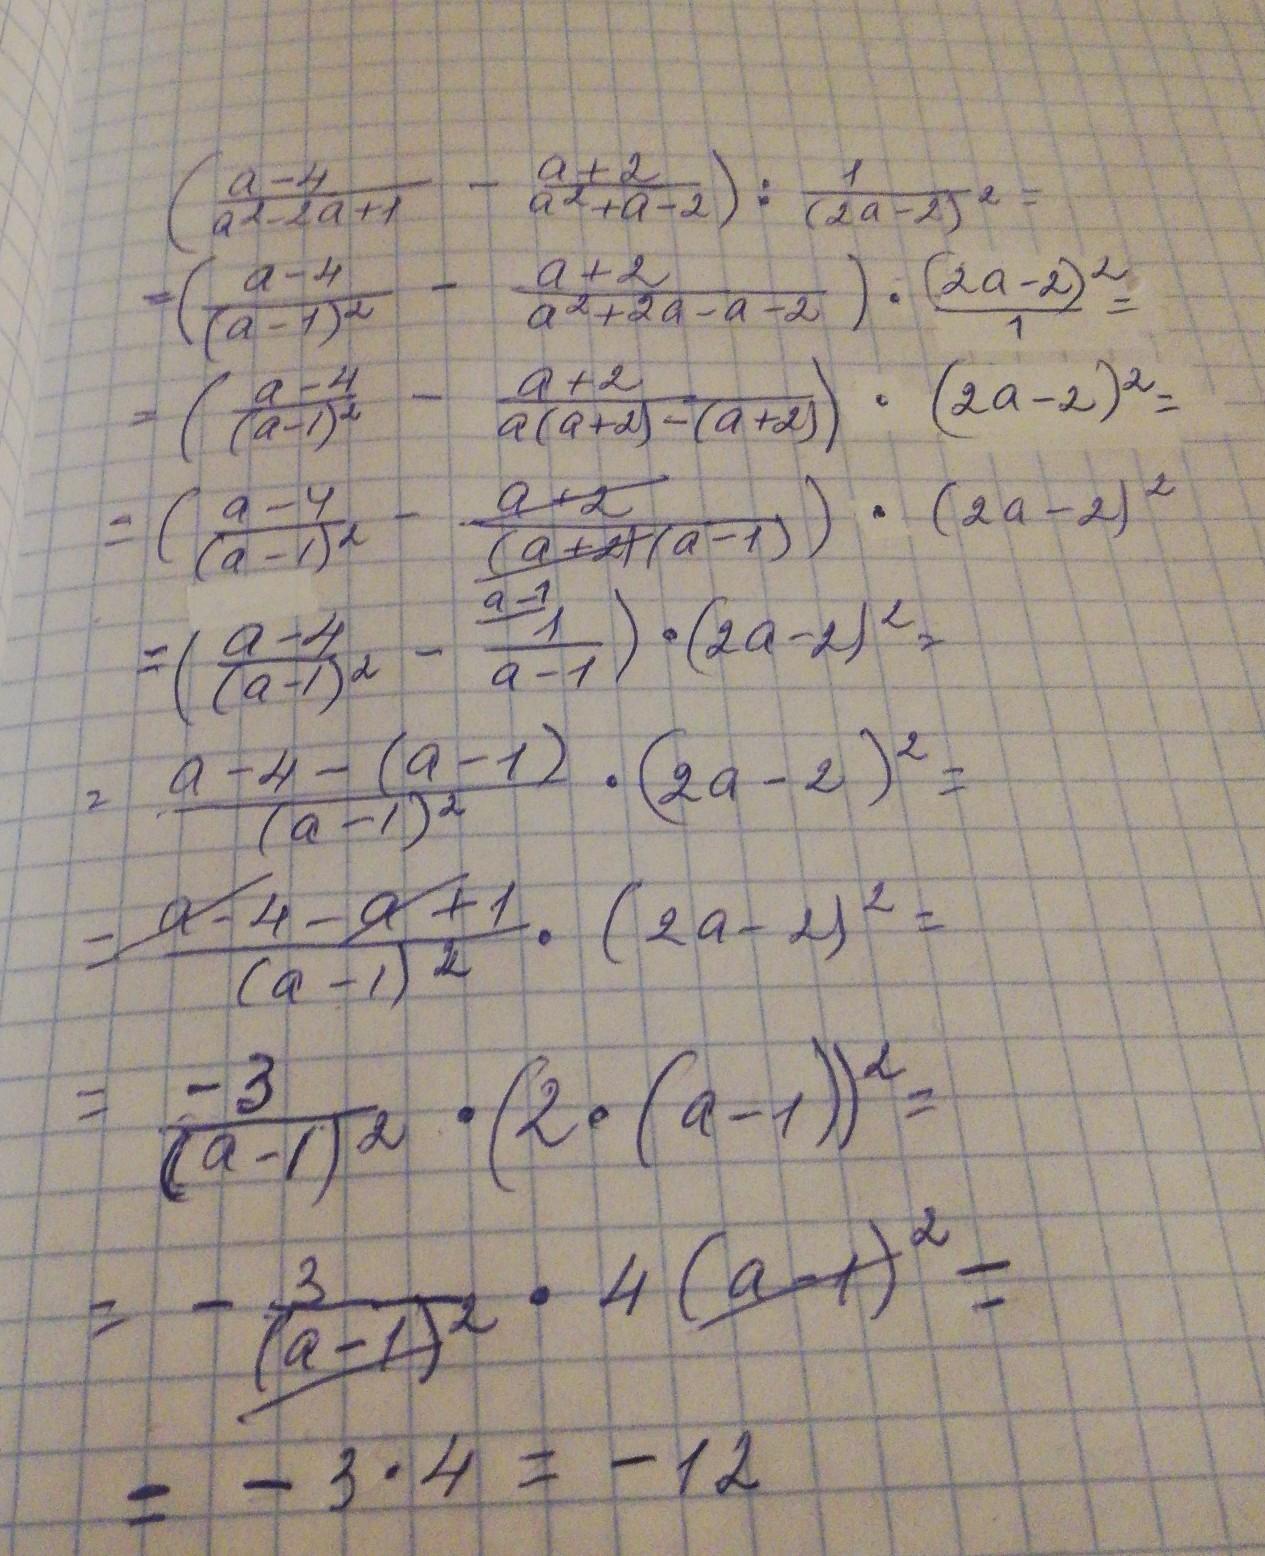 (a-4/a²-2a+1 - a+2/a²+a-2) : 1/(2a-2)² =
=(a-4/(a-1)² - a+2/a²+2a-a-2) · (2a-2)²/1 =
= (a-4/(a-1)² - a+2/a(a+2)-(a+2)) · (2a-2)² =
= (a-4/(a-1)² - a+2/(a+2)(a-1)) · (2a-2)²
a-1
=(a-4/(a-1)² - 1/a-1) · (2a-2)² =
= a-4-(a-1)/(a-1)² · (2a-2)² =
= a-4-a+1/(a-1)² · (2a-2)² =
= -3/(a-1)² · (2·(a-1))² =
= - 3/(a-1)² · 4(a-1)² =
= -3·4 = -12